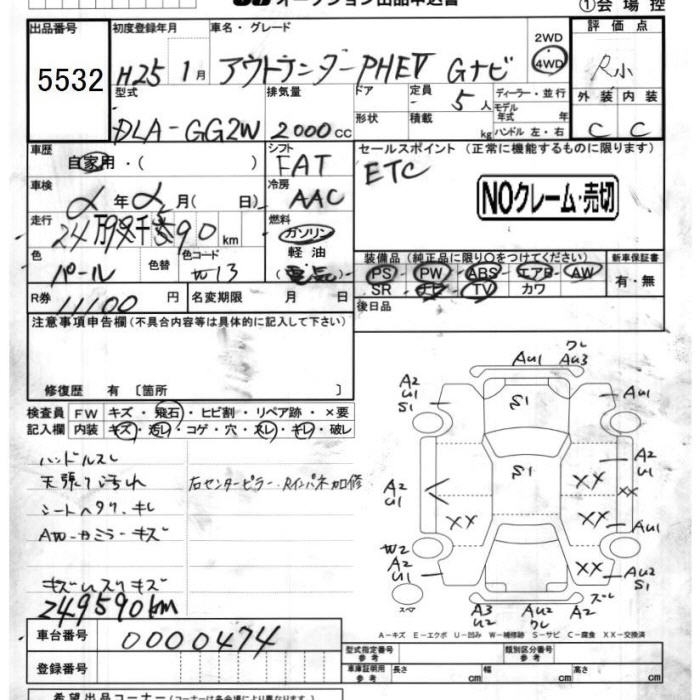 オークション出品申込書
①会場控
出品番号
5532
初度登録年月
H25 1月
車名・グレード
アウトランダーPHEV Gナビ
2WD
4WD
評価点
R小
型式
DLA-GG2W
排気量
2000cc
ドア
形状
定員
5人
積載
kg
ディーラー・並行
モデル
年式 年
ハンドル 左・右
外装 内装
C C
車歴
自家用・( )
シフト
FAT
セールスポイント (正常に機能するものに限ります)
ETC
NOクレーム・売切
車検
年 月( 日)
冷房
AAC
走行
km
燃料
ガソリン
軽油
電気
色
パール
色替
色コード
W13
装備品 (純正品に限り○をつけてください)
新車保証書
PS PW ABS エアB AW
有・無
SR ナビ TV カワ
R券
11100円
名変期限 月 日
後日品
注意事項申告欄 (不具合内容等は具体的に記入して下さい)
修復歴 有 〔箇所 〕
検査員 FW キズ・飛石・ヒビ割・リペア跡・×要
記入欄 内装 キズ・汚レ・コゲ・穴・スレ・キレ・破レ
ハンドルスレ
天張り汚れ
右センターピラー・Rインパネ加修
シートヘタリ・キレ
AW-カミラーキズ
249590km
クレ
AU1 AU3
A2
U1
S1
S1
AU1
A2
U1
S1
XX
XX
A2
U1
XX
XX
AU1
W2
A2
U1
AU2
S1
スペア
A3
U2
AU2
クレ
A2
ズレ
A-キズ E-エクボ U-凹み W-補修跡 S-サビ C-腐食 XX-交換済
車台番号
0000474
登録番号
型式指定番号
参考
類別区分番号
参考
車庫証明用
参考
長さ cm
幅 cm
高さ cm
希望出品コーナー